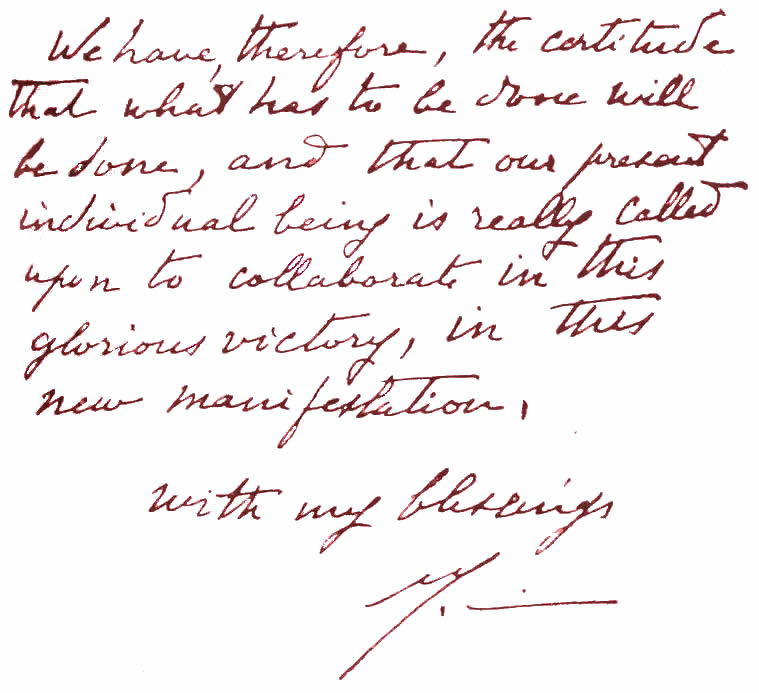 We have, therefore, the certitude
that what has to be done will
be done, and that our present
individual being is really called
upon to collaborate in this
glorious victory, in this
new manifestation.
with my blessings